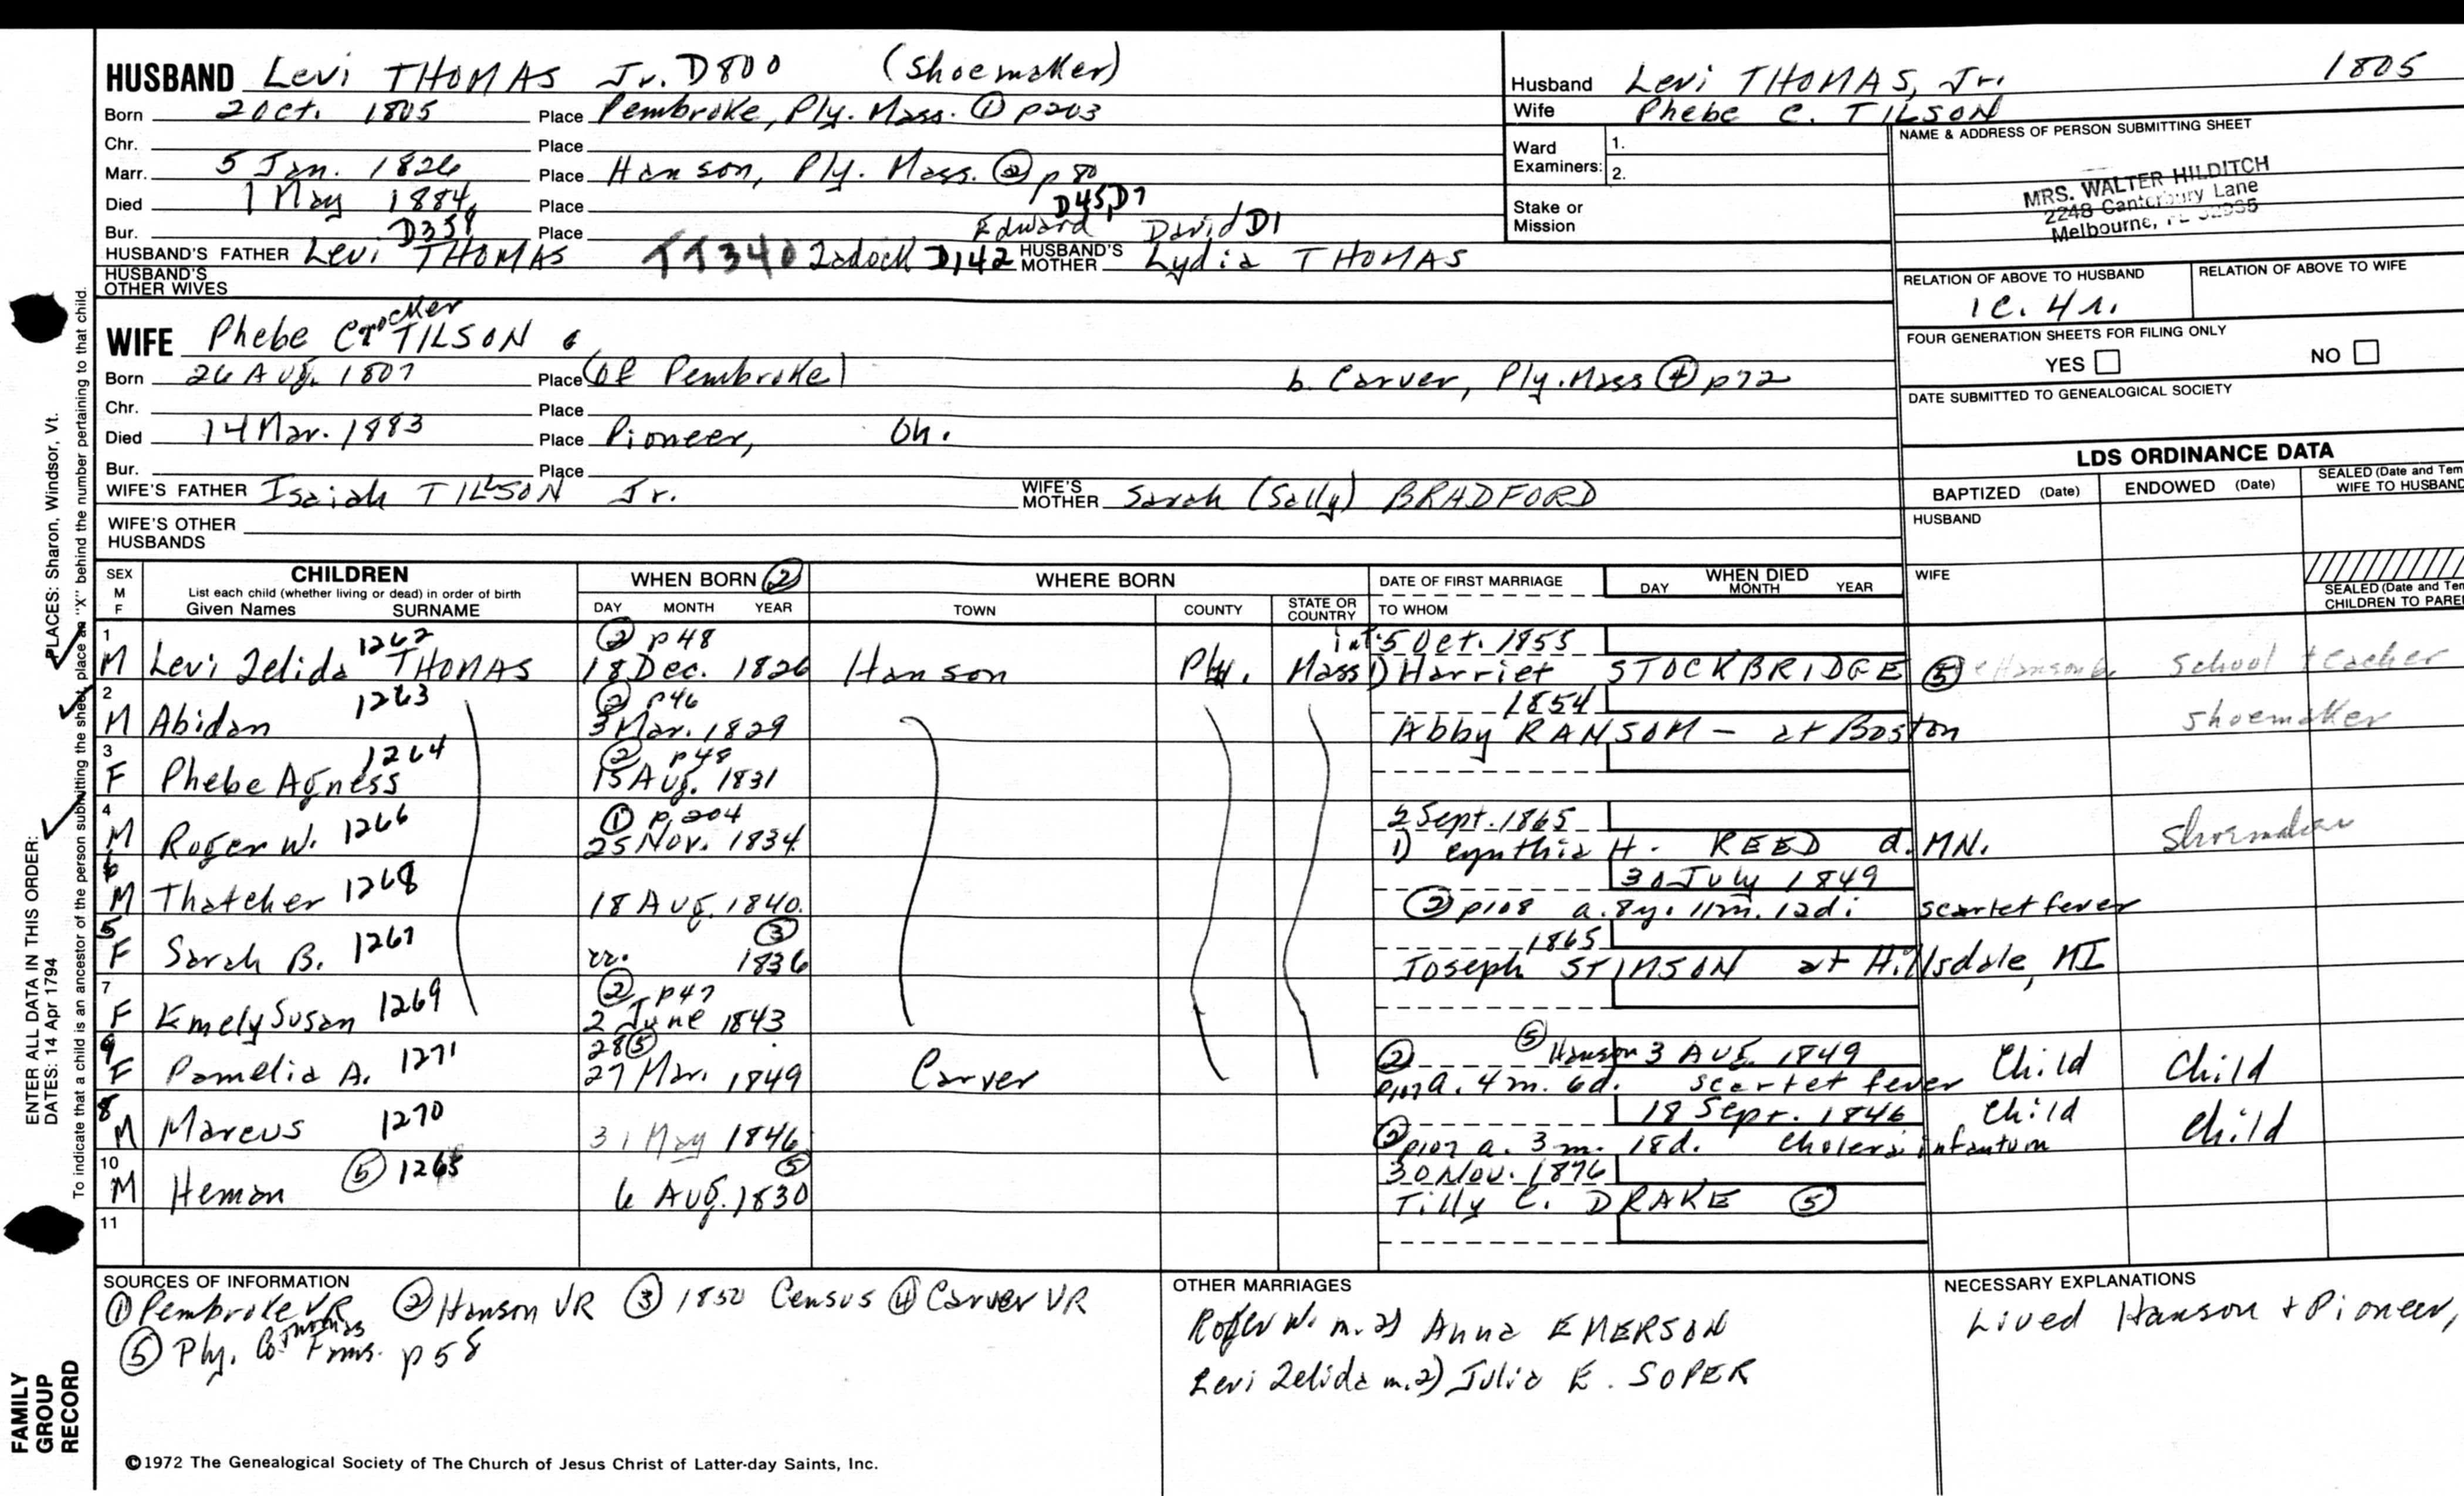 HUSBAND Levi THOMAS Jr. D800 (Shoemaker)
Born 2 Oct. 1805 Place Pembroke, Ply. Mass. ① p203
Chr. Place
Marr. 5 Jan. 1826 Place Hanson, Ply. Mass. ② p 80
Died 1 May 1884 Place D45, D7
Bur. Place Edward David D1
HUSBAND'S FATHER Levi THOMAS D358 TT340 Zadock D142 HUSBAND'S MOTHER Lydia THOMAS
HUSBAND'S OTHER WIVES
Husband Levi THOMAS, Jr. 1805
Wife Phebe C. TILSON
Ward Examiners: 1.
2.
Stake or Mission
NAME & ADDRESS OF PERSON SUBMITTING SHEET
MRS. WALTER HILDITCH
2248 Canterbury Lane
Melbourne,
RELATION OF ABOVE TO HUSBAND RELATION OF ABOVE TO WIFE
1c. 4r.
FOUR GENERATION SHEETS FOR FILING ONLY
YES NO
DATE SUBMITTED TO GENEALOGICAL SOCIETY
WIFE Phebe Crocker TILSON
Born 26 Aug. 1807 Place (of Pembroke) b. Carver, Ply. Mass ④ p72
Chr. Place
Died 14 Mar. 1883 Place Pioneer, Oh.
Bur. Place
WIFE'S FATHER Isaiah TILSON Jr. WIFE'S MOTHER Sarah (Sally) BRADFORD
WIFE'S OTHER HUSBANDS
LDS ORDINANCE DATA
BAPTIZED (Date) ENDOWED (Date) SEALED (Date and Tem
WIFE TO HUSBAND
HUSBAND
WIFE
SEALED (Date and Tem
CHILDREN TO PARE
SEX M F CHILDREN WHEN BORN ② WHERE BORN DATE OF FIRST MARRIAGE WHEN DIED
List each child (whether living or dead) in order of birth
Given Names SURNAME DAY MONTH YEAR TOWN COUNTY STATE OR COUNTRY TO WHOM DAY MONTH YEAR
1 1262 ② p48 int. 5 Oct. 1855
M Levi Zelida THOMAS 18 Dec. 1826 Hanson Ply. Mass 1) Harriet STOCKBRIDGE ⑤ school teacher
2 1263 ② p46 1854 shoemaker
M Abidan 3 Mar. 1829 Abby RANSOM - at Boston
3 1264 ② p48
F Phebe Agness 15 Aug. 1831
4 1266 ① p.204 2 Sept. 1865
M Roger W. 25 Nov. 1834 1) Cynthia H. REED d. MN. Shoemaker
6 1268 30 July 1849
M Thatcher 18 Aug. 1840. ② p108 a. 8y. 11m. 12d. scarlet fever
5 1267 ③ 1865
F Sarah B. ca. 1836 Joseph STIMSON at Hillsdale, MI
7 1269 ② p47
F Emely Susan 2 June 1843
9 1271 28⑤ ② ⑤ Hanson 3 Aug. 1849 Child Child
F Pamelia A. 27 Mar. 1849 Carver p107 a. 4m. 6d. scarlet fever
8 1270 18 Sept. 1846 Child Child
M Marcus 31 May 1846 ② p107 a. 3m. 18d. cholera infantum
10 ⑤ 1265 ⑤ 30 Nov. 1876
M Heman 6 Aug. 1830 Tilly C. DRAKE ⑤
11
SOURCES OF INFORMATION
① Pembroke VR ② Hanson VR ③ 1850 Census ④ Carver VR
⑤ Ply. Co. Thomas Fams. p58
OTHER MARRIAGES
Roger W. m. 2) Anna EMERSON
Levi Zelida m. 2) Julia E. SOPER
NECESSARY EXPLANATIONS
Lived Hanson + Pioneer,
©1972 The Genealogical Society of The Church of Jesus Christ of Latter-day Saints, Inc.
FAMILY
GROUP
RECORD
ENTER ALL DATA IN THIS ORDER:
DATES: 14 Apr 1794
PLACES: Sharon, Windsor, Vt.
To indicate that a child is an ancestor of the person submitting the sheet, place an "X" behind the number pertaining to that child.